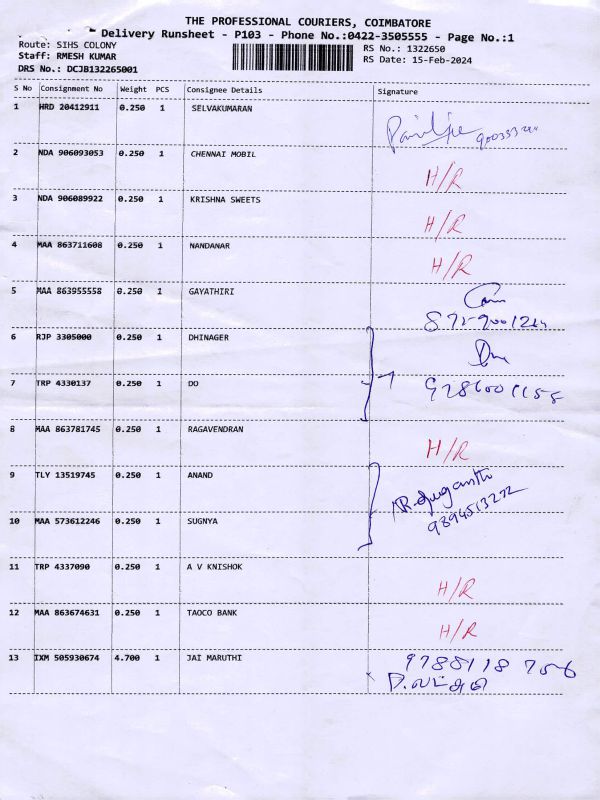 THE PROFESSIONAL COURIERS, COIMBATORE
Delivery Runsheet - P103 - Phone No.:0422-3505555 - Page No.:1
Route: SIHS COLONY
RS No.: 1322650
Staff: RMESH KUMAR
RS Date: 15-Feb-2024
DRS No.: DCJB132265001
S No Consignment No Weight PCS Consignee Details Signature
1 HRD 20412911 0.250 1 SELVAKUMARAN
2 NDA 906093053 0.250 1 CHENNAI MOBIL H/R
3 NDA 906089922 0.250 1 KRISHNA SWEETS H/R
4 MAA 863711608 0.250 1 NANDANAR H/R
5 MAA 863955558 0.250 1 GAYATHIRI
6 RJP 3305000 0.250 1 DHINAGER
7 TRP 4330137 0.250 1 DO
8 MAA 863781745 0.250 1 RAGAVENDRAN H/R
9 TLY 13519745 0.250 1 ANAND
10 MAA 573612246 0.250 1 SUGNYA
9894513272
11 TRP 4337090 0.250 1 A V KNISHOK H/R
12 MAA 863674631 0.250 1 TAOCO BANK H/R
13 IXM 505930674 4.700 1 JAI MARUTHI 9788118 756